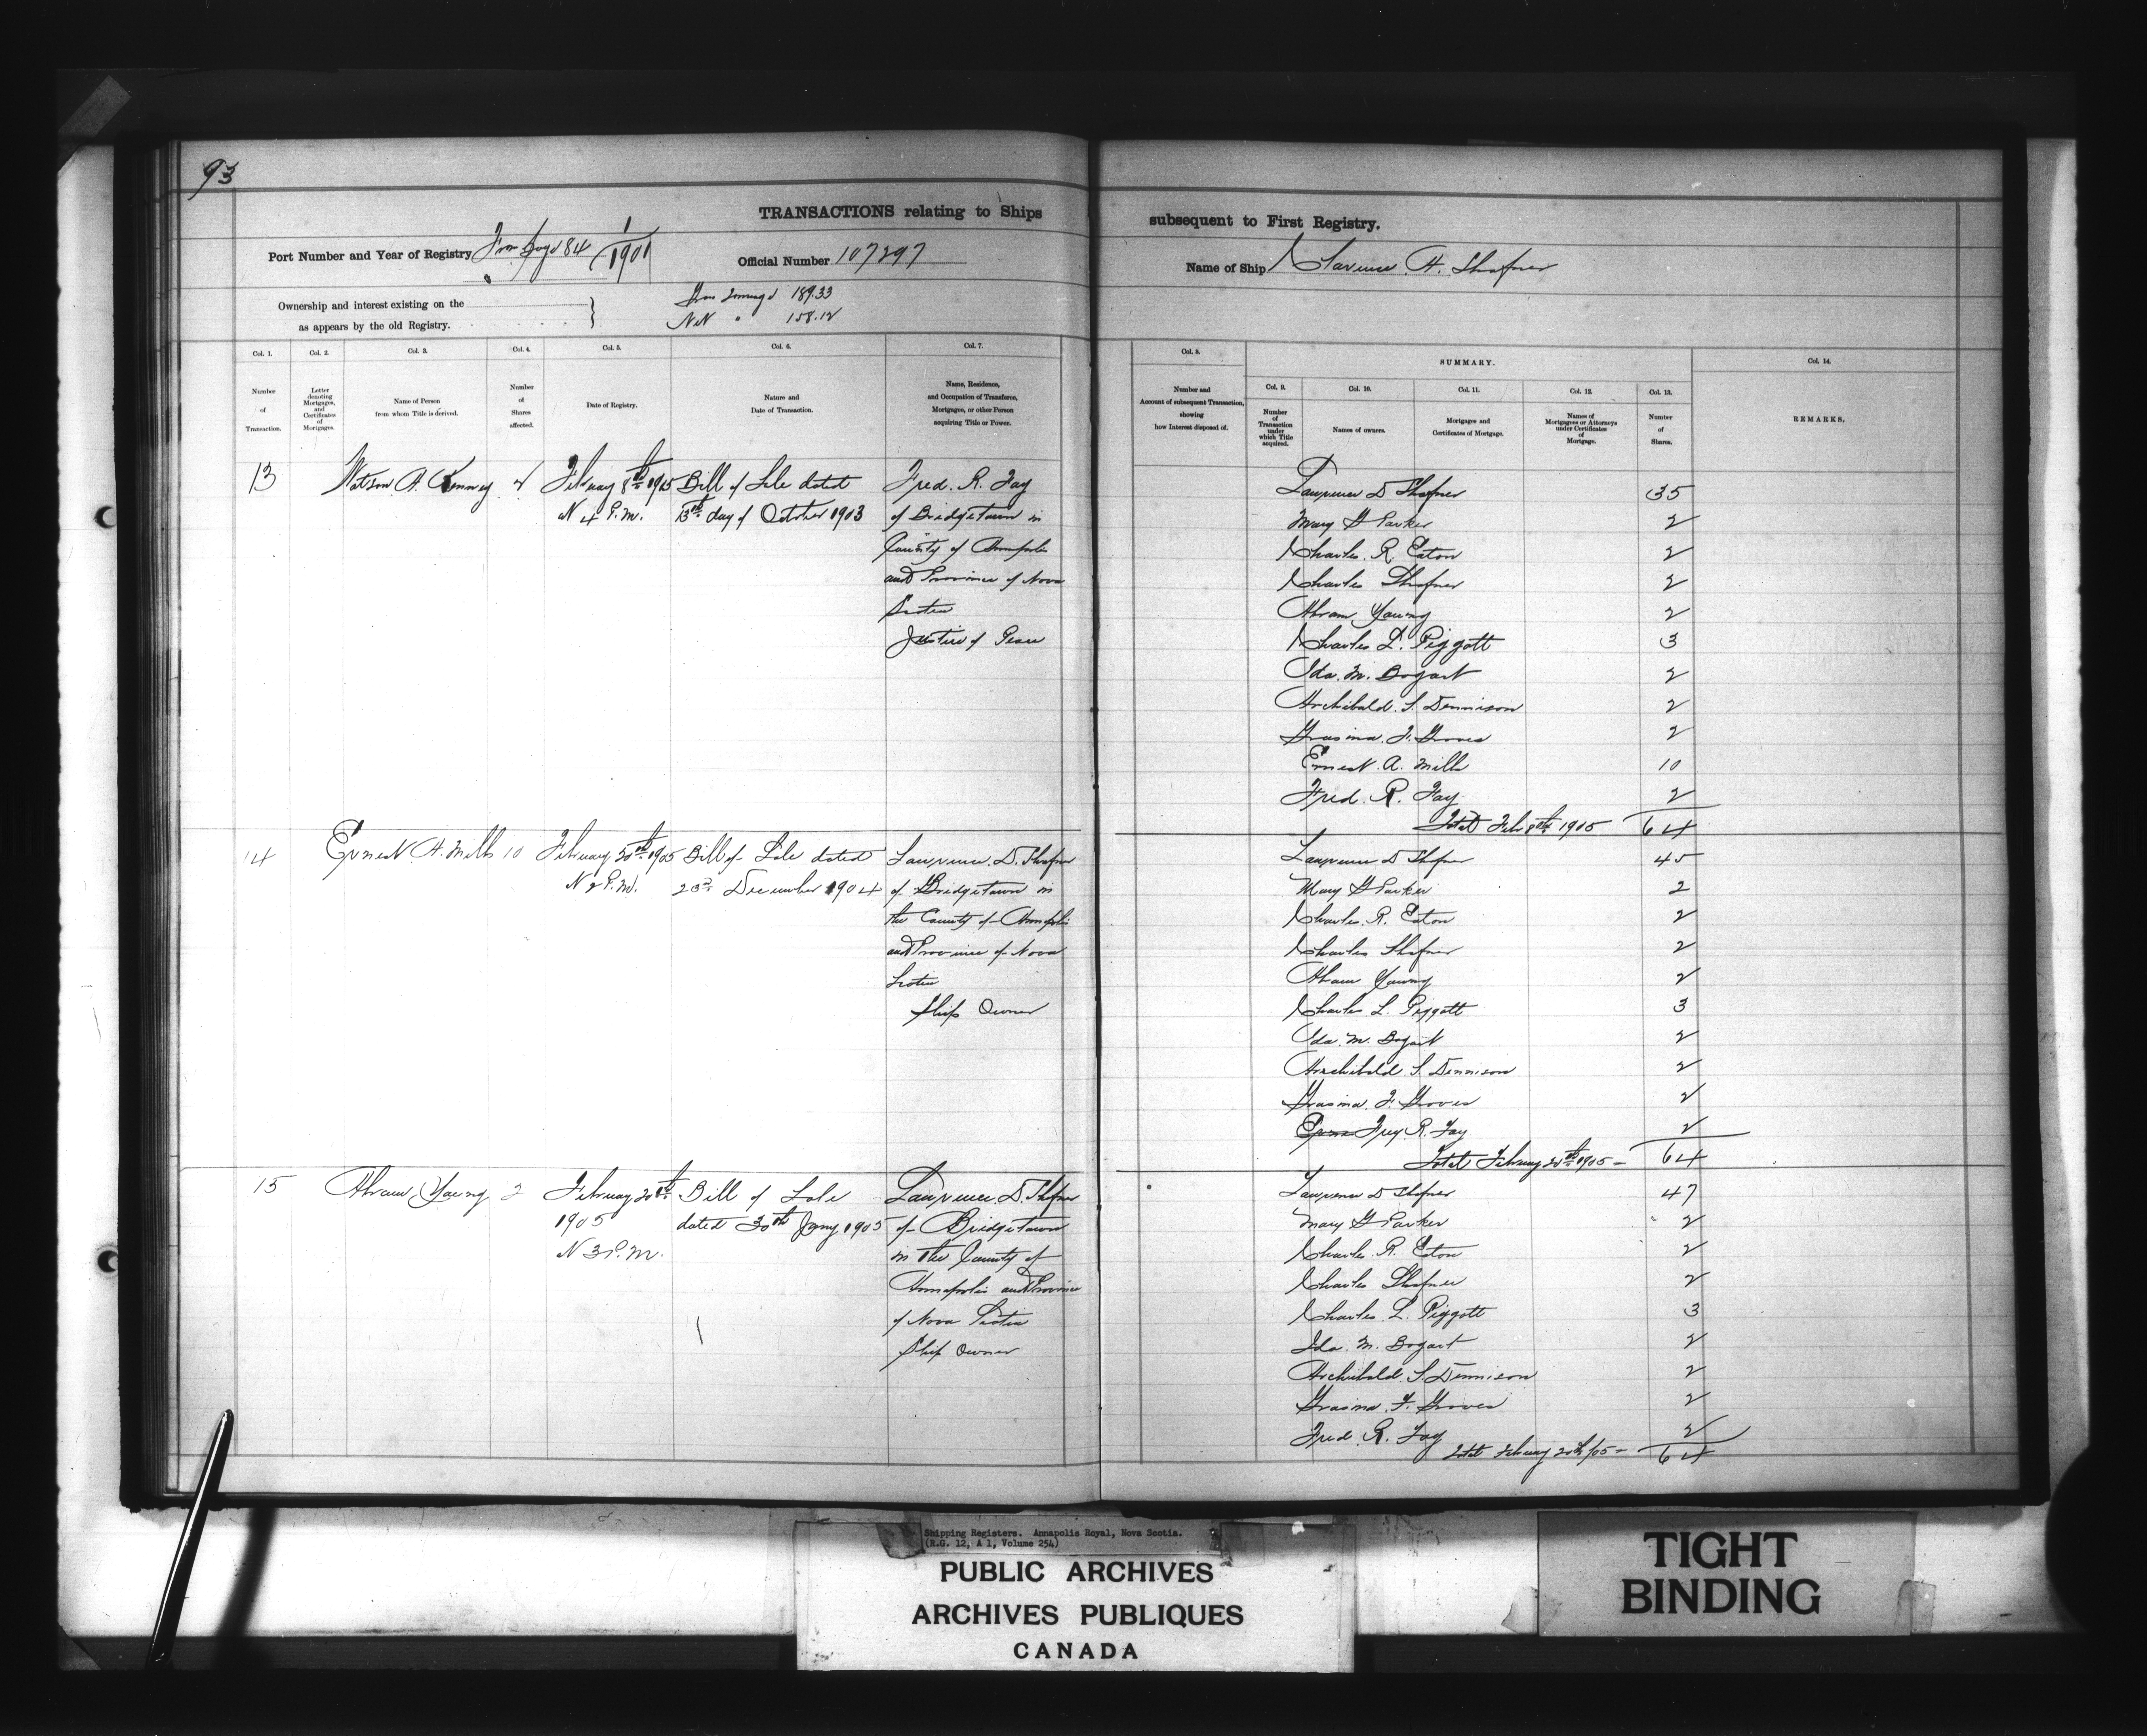 93
TRANSACTIONS relating to Ships subsequent to First Registry.
Port Number and Year of Registry From page 84 1/1901 Official Number 107297 Name of Ship Clarence A. Shafner
Ownership and interest existing on the
as appears by the old Registry.
Gross Tonnage 189.33
Net " 158.12
Col. 1. Col. 2. Col. 3. Col. 4. Col. 5. Col. 6. Col. 7. Col. 8. SUMMARY. Col. 14.
Col. 9. Col. 10. Col. 11. Col. 12. Col. 13.
Number of Transaction.
Letter denoting Mortgages, and Certificates of Mortgages.
Name of Person from whom Title is derived.
Number of Shares affected.
Date of Registry.
Nature and Date of Transaction.
Name, Residence, and Occupation of Transferee, Mortgagee, or other Person acquiring Title or Power.
Number and Account of subsequent Transaction, showing how Interest disposed of.
Number of Transaction under which Title acquired.
Names of owners.
Mortgages and Certificates of Mortgage.
Names of Mortgagees or Attorneys under Certificates of Mortgage.
Number of Shares.
REMARKS.
13 Watson A. Kenney 2 February 8th 1905 Bill of Sale dated Fred. R. Fay
4 P.M. 13th day of October 1903 of Bridgetown in
County of Annapolis
and Province of Nova
Scotia
Justice of Peace
Lawrence D Shafner 35
Mary G Parker 2
Charles R. Eaton 2
Charles Shafner 2
Abram Young 2
Charles L. Piggott 3
Ida. M. Bogart 2
Archibald. S. Dennison 2
F. Groves 2
Ernest. A. Mills 10
Fred. R. Fay 2
Total Feb 8th 1905 64
14 Ernest A. Mills 10 February 20th 1905 Bill of Sale dated Lawrence. D. Shafner
2 P.M. 23rd December 1904 of Bridgetown in
the County of Annapolis
and Province of Nova
Scotia
Ship Owner
Lawrence D Shafner 45
Mary G Parker 2
Charles. R. Eaton 2
Charles Shafner 2
Abram Young 2
Charles L. Piggott 3
Ida. M. Bogart 2
Archibald S. Dennison 2
F. Groves 2
R. Fay 2
Total February 20th 1905 - 64
15 Abram Young 2 February 20th Bill of Sale Lawrence. D. Shafner
1905 dated 30th Jany 1905 of Bridgetown
3 P.M. in the County of
Annapolis and Province
of Nova Scotia
Ship Owner
Lawrence D Shafner 47
Mary G Parker 2
Charles R. Eaton 2
Charles Shafner 2
Charles L. Piggott 3
Ida. M. Bogart 2
Archibald. S. Dennison 2
F. Groves 2
Fred R. Fay 2
Total February 20th /05 - 64
Shipping Registers. Annapolis Royal, Nova Scotia.
(R.G. 12, A 1, Volume 254)
PUBLIC ARCHIVES
ARCHIVES PUBLIQUES
CANADA
TIGHT
BINDING